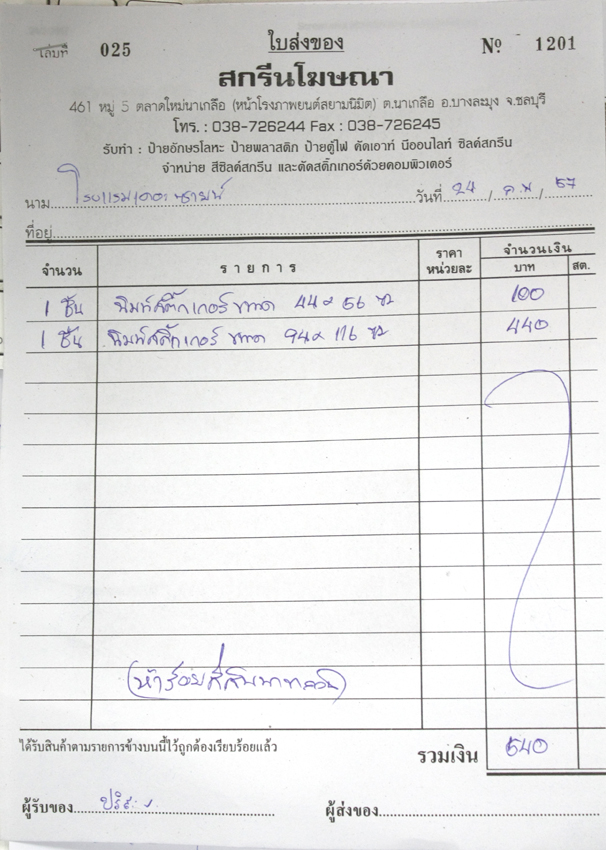 เล่มที่ 025 ใบส่งของ Nº 1201
สกรีนโฆษณา
461 หมู่ 5 ตลาดใหม่นาเกลือ (หน้าโรงภาพยนต์สยามนิมิต) ต.นาเกลือ อ.บางละมุง จ.ชลบุรี
โทร. : 038-726244 Fax : 038-726245
รับทำ : ป้ายอักษรโลหะ ป้ายพลาสติก ป้ายตู้ไฟ คัดเอาท์ นีออนไลท์ ซิลค์สกรีน
จำหน่าย สีซิลค์สกรีน และตัดสติ๊กเกอร์ด้วยคอมพิวเตอร์
นาม โรงแรม วันที่ 24 / ค.พ / 57
ที่อยู่
จำนวน รายการ ราคาหน่วยละ จำนวนเงิน บาท สต.
1 ชิ้น พิมพ์สติ๊กเกอร์ ขนาด 44 x 56 ซม 100
1 ชิ้น พิมพ์สติ๊กเกอร์ ขนาด 94 x 116 ซม 440
(ห้าร้อยสี่สิบบาทถ้วน)
ได้รับสินค้าตามรายการข้างบนนี้ไว้ถูกต้องเรียบร้อยแล้ว รวมเงิน 540
ผู้รับของ ผู้ส่งของ